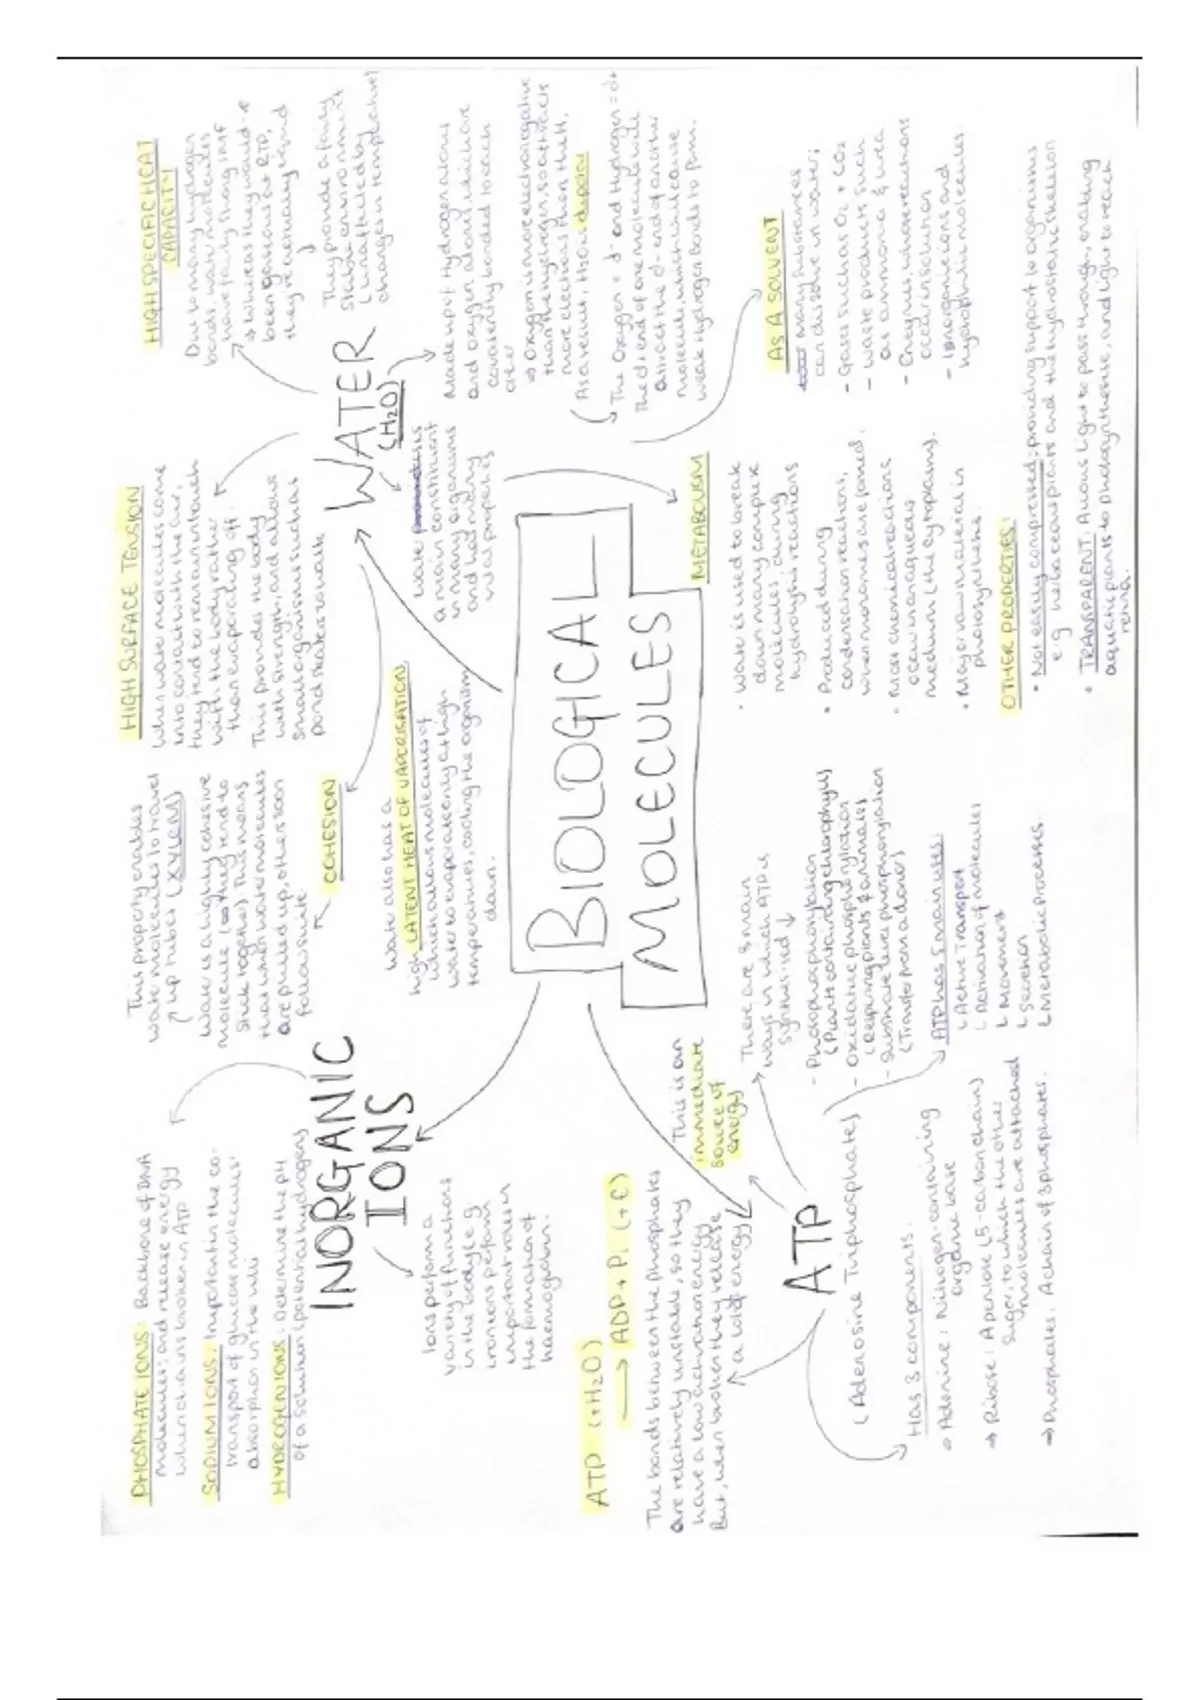 BIOLOGICAL
MOLECULES
WATER
(H2O)
HIGH SPECIFIC HEAT
CAPACITY
Due to many hydrogen
bonds, water molecules
have fairly strong IMF
→ Whereas they would
been gaseous at RTP,
They provide a fairly
stable environment
(unaffected by
changes in temperature)
Made up of Hydrogen atoms
and oxygen atoms, which are
covalently bonded to each
other
⇒ Oxygen is more electronegative
than the hydrogen, so attracts
more electrons than the H.
As a result, it has dipoles
The Oxygen = δ- and Hydrogen = δ+
The δ+ end of one molecule will
attract the δ- end of another
molecule, which will cause
weak Hydrogen Bonds to form.
Water
a main constituent
in many organisms
and has many
vital properties
AS A SOLVENT
Many substances
can dissolve in water;
- Gases such as O2 + CO2
- Waste products such
as ammonia & urea
- Enzymes, whose reactions
occur in solution
- Inorganic ions and
hydrophilic molecules.
METABOLISM
• Water is used to break
down many complex
molecules, during
hydrolysis reactions
• Produced during
condensation reactions,
• Most chemical reactions
occur in an aqueous
medium (the cytoplasm).
• Major raw material in
photosynthesis.
OTHER PROPERTIES:
• Not easily compressed: providing support to organisms
e.g herbaceous plants and the hydrostatic skeleton
• TRANSPARENT: Allows light to pass through, enabling
aquatic plants to photosynthesise, and light to reach
retina.
HIGH SURFACE TENSION
When water molecules come
into contact with the air,
they tend to remain attach
with the body rather
than evaporating off.
This provides the body
with strength and allows
small organisms such as
pond skaters to walk
COHESION
Water is a highly cohesive
molecule (they tend to
stick together). This means
that when water molecules
are pulled up, others soon
follow suite.
This property enables
water molecules to travel
up tubes (XYLEM)
Water also has a
high LATENT HEAT OF VAPORISATION
which allows molecules of
water to evaporate only at high
temperatures, cooling the organism
down.
INORGANIC
IONS
Ions perform a
variety of functions
in the body e.g
iron ions perform
important roles in
the formation of
haemoglobin.
PHOSPHATE IONS: Backbone of DNA
molecules, and release energy
when chains broken in ATP
SODIUM IONS: Important in the co-
transport of glucose molecules'
absorption in the villi
HYDROGEN IONS: Determine the pH
of a solution (potential hydrogen)
ATP
(Adenosine Triphosphate)
Has 3 components:
⇒ Adenine: Nitrogen containing
organic base
⇒ Ribose: A pentose (5-carbon chain)
sugar, to which the other
molecules are attached
⇒ Phosphates: A chain of 3 phosphates.
ATP (+H2O)
→ ADP + Pi (+E)
The bonds between the phosphates
are relatively unstable, so they
have a low activation energy
But, when broken they release
a lot of energy
This is an
immediate
source of
energy
There are 3 main
ways in which ATP is
synthesised ↓
- Photophosphorylation
(Plants containing chlorophyll)
- Oxidative phosphorylation
(Respiring plants & animals)
- Substrate level phosphorylation
(Transfer from a donor)
ATP has 5 main uses:
↳ Active Transport
↳ Activation of molecules
↳ Movement
↳ Secretion
↳ Metabolic processes.